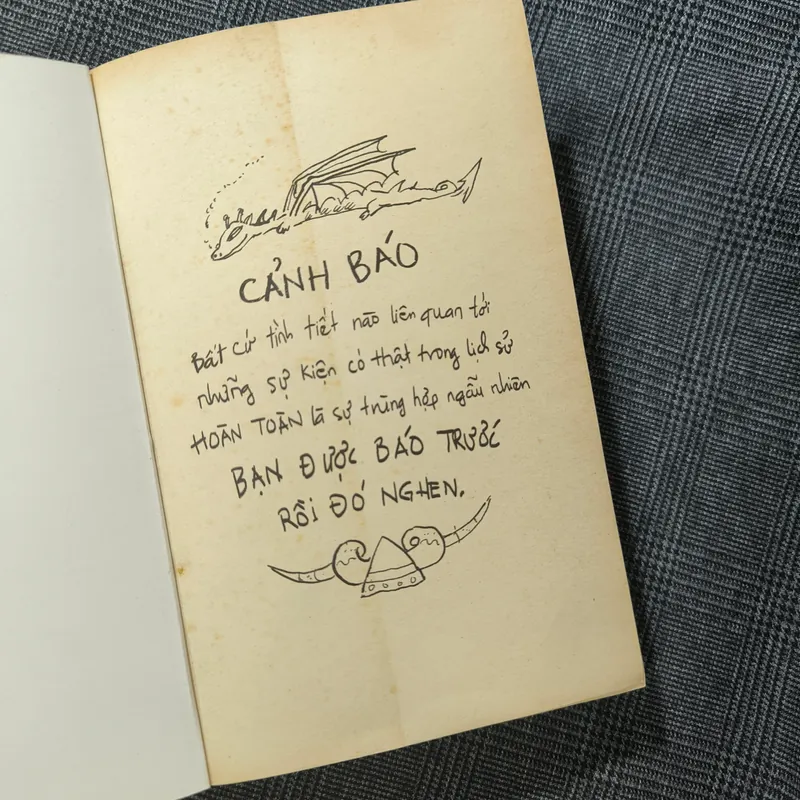 CẢNH BÁO
Bất cứ tình tiết nào liên quan tới
những sự kiện có thật trong lịch sử
HOÀN TOÀN là sự trùng hợp ngẫu nhiên
BẠN ĐƯỢC BÁO TRƯỚC
RỒI ĐÓ NGHEN.